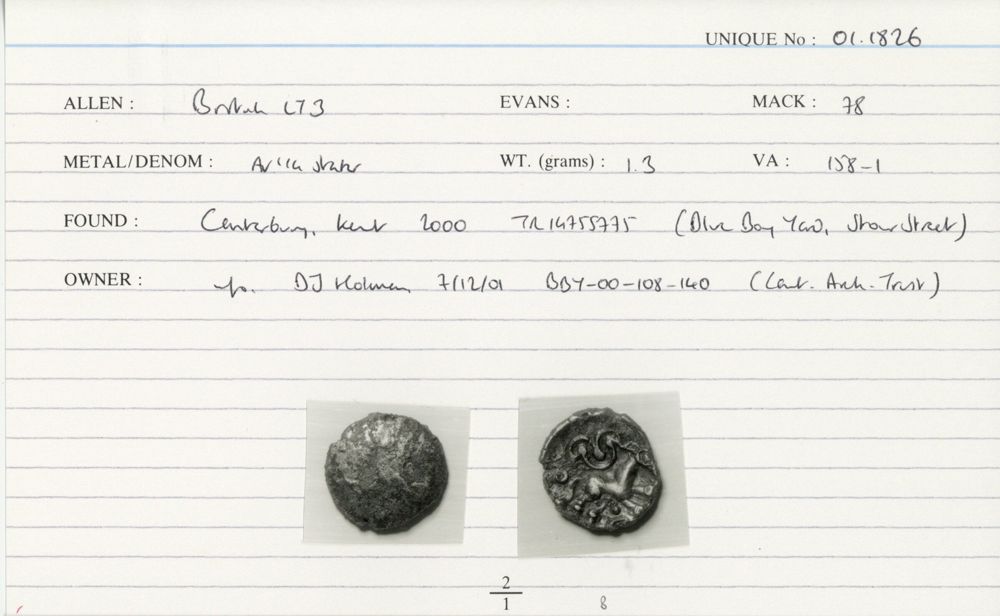 UNIQUE No : 01.1826
ALLEN : British LT3 EVANS : MACK : 78
METAL/DENOM : AV 1/4 stater WT. (grams) : 1.3 VA : 158-1
FOUND : Canterbury, Kent 2000 TR14755775 (Blue Boy Yard, Stour Street)
OWNER : DJ Holman 7/12/01 BBY-00-108-140 (Cant. Arch. Trust)
2
1 8